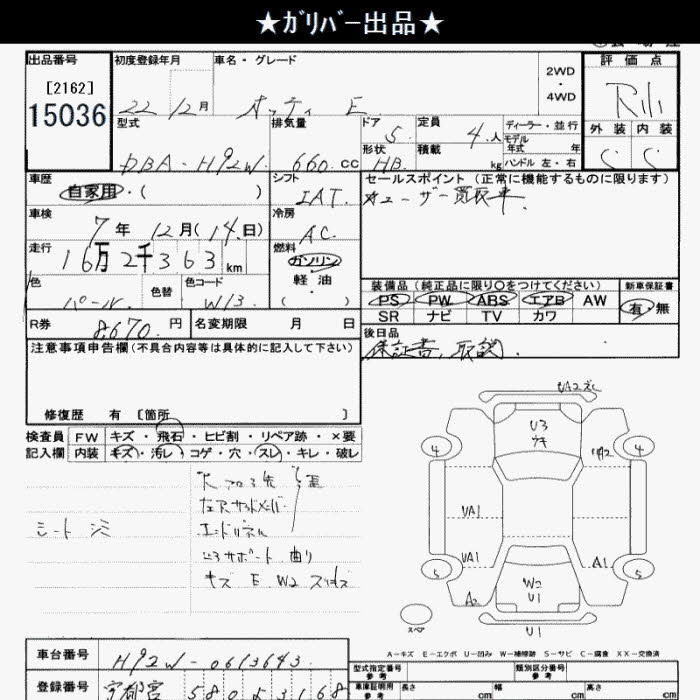 ★ガリバー出品★
出品番号 初度登録年月 車名・グレード 評価点
[2162] 2WD
15036 ・ 4WD
22 12月 オッティ E
外装 内装
型式 排気量 ドア 5 定員 4人 ディーラー・並行
形状 積載 モデル年式 年
DBA-H92W 660cc HB kg ハンドル 左・右
車歴 シフト セールスポイント (正常に機能するものに限ります)
自家用・( ) IAT ユーザー買取車
車検 冷房
7年 12月(14日) AC
走行 燃料
16万2千363km ガソリン
色 色替 色コード 軽油
パール W13 ( )
装備品 (純正品に限り○をつけてください) 新車保証書
PS PW ABS エアB AW 有・無
SR ナビ TV カワ
R券 8,670円 名変期限 月 日 後日品
保証書、取説
注意事項申告欄(不具合内容等は具体的に記入して下さい)
修復歴 有 [箇所 ]
検査員 FW キズ・飛石・ヒビ割・リペア跡・×要
記入欄 内装 キズ・汚レ・コゲ・穴・スレ・キレ・破レ
UA2
U3
4 4
シート
UA1
サポート 曲り
UA1 A1
キズ E W2
5 5
W2
U1
A2
スペア U1
A-キズ E-エクボ U-凹み W-補修跡 S-サビ C-腐食 XX-交換済
車台番号 H92W-0613643
型式指定番号 参考 類別区分番号 参考
登録番号 宇都宮 580 53168
車庫証明用 参考 長さ cm 幅 cm 高さ cm